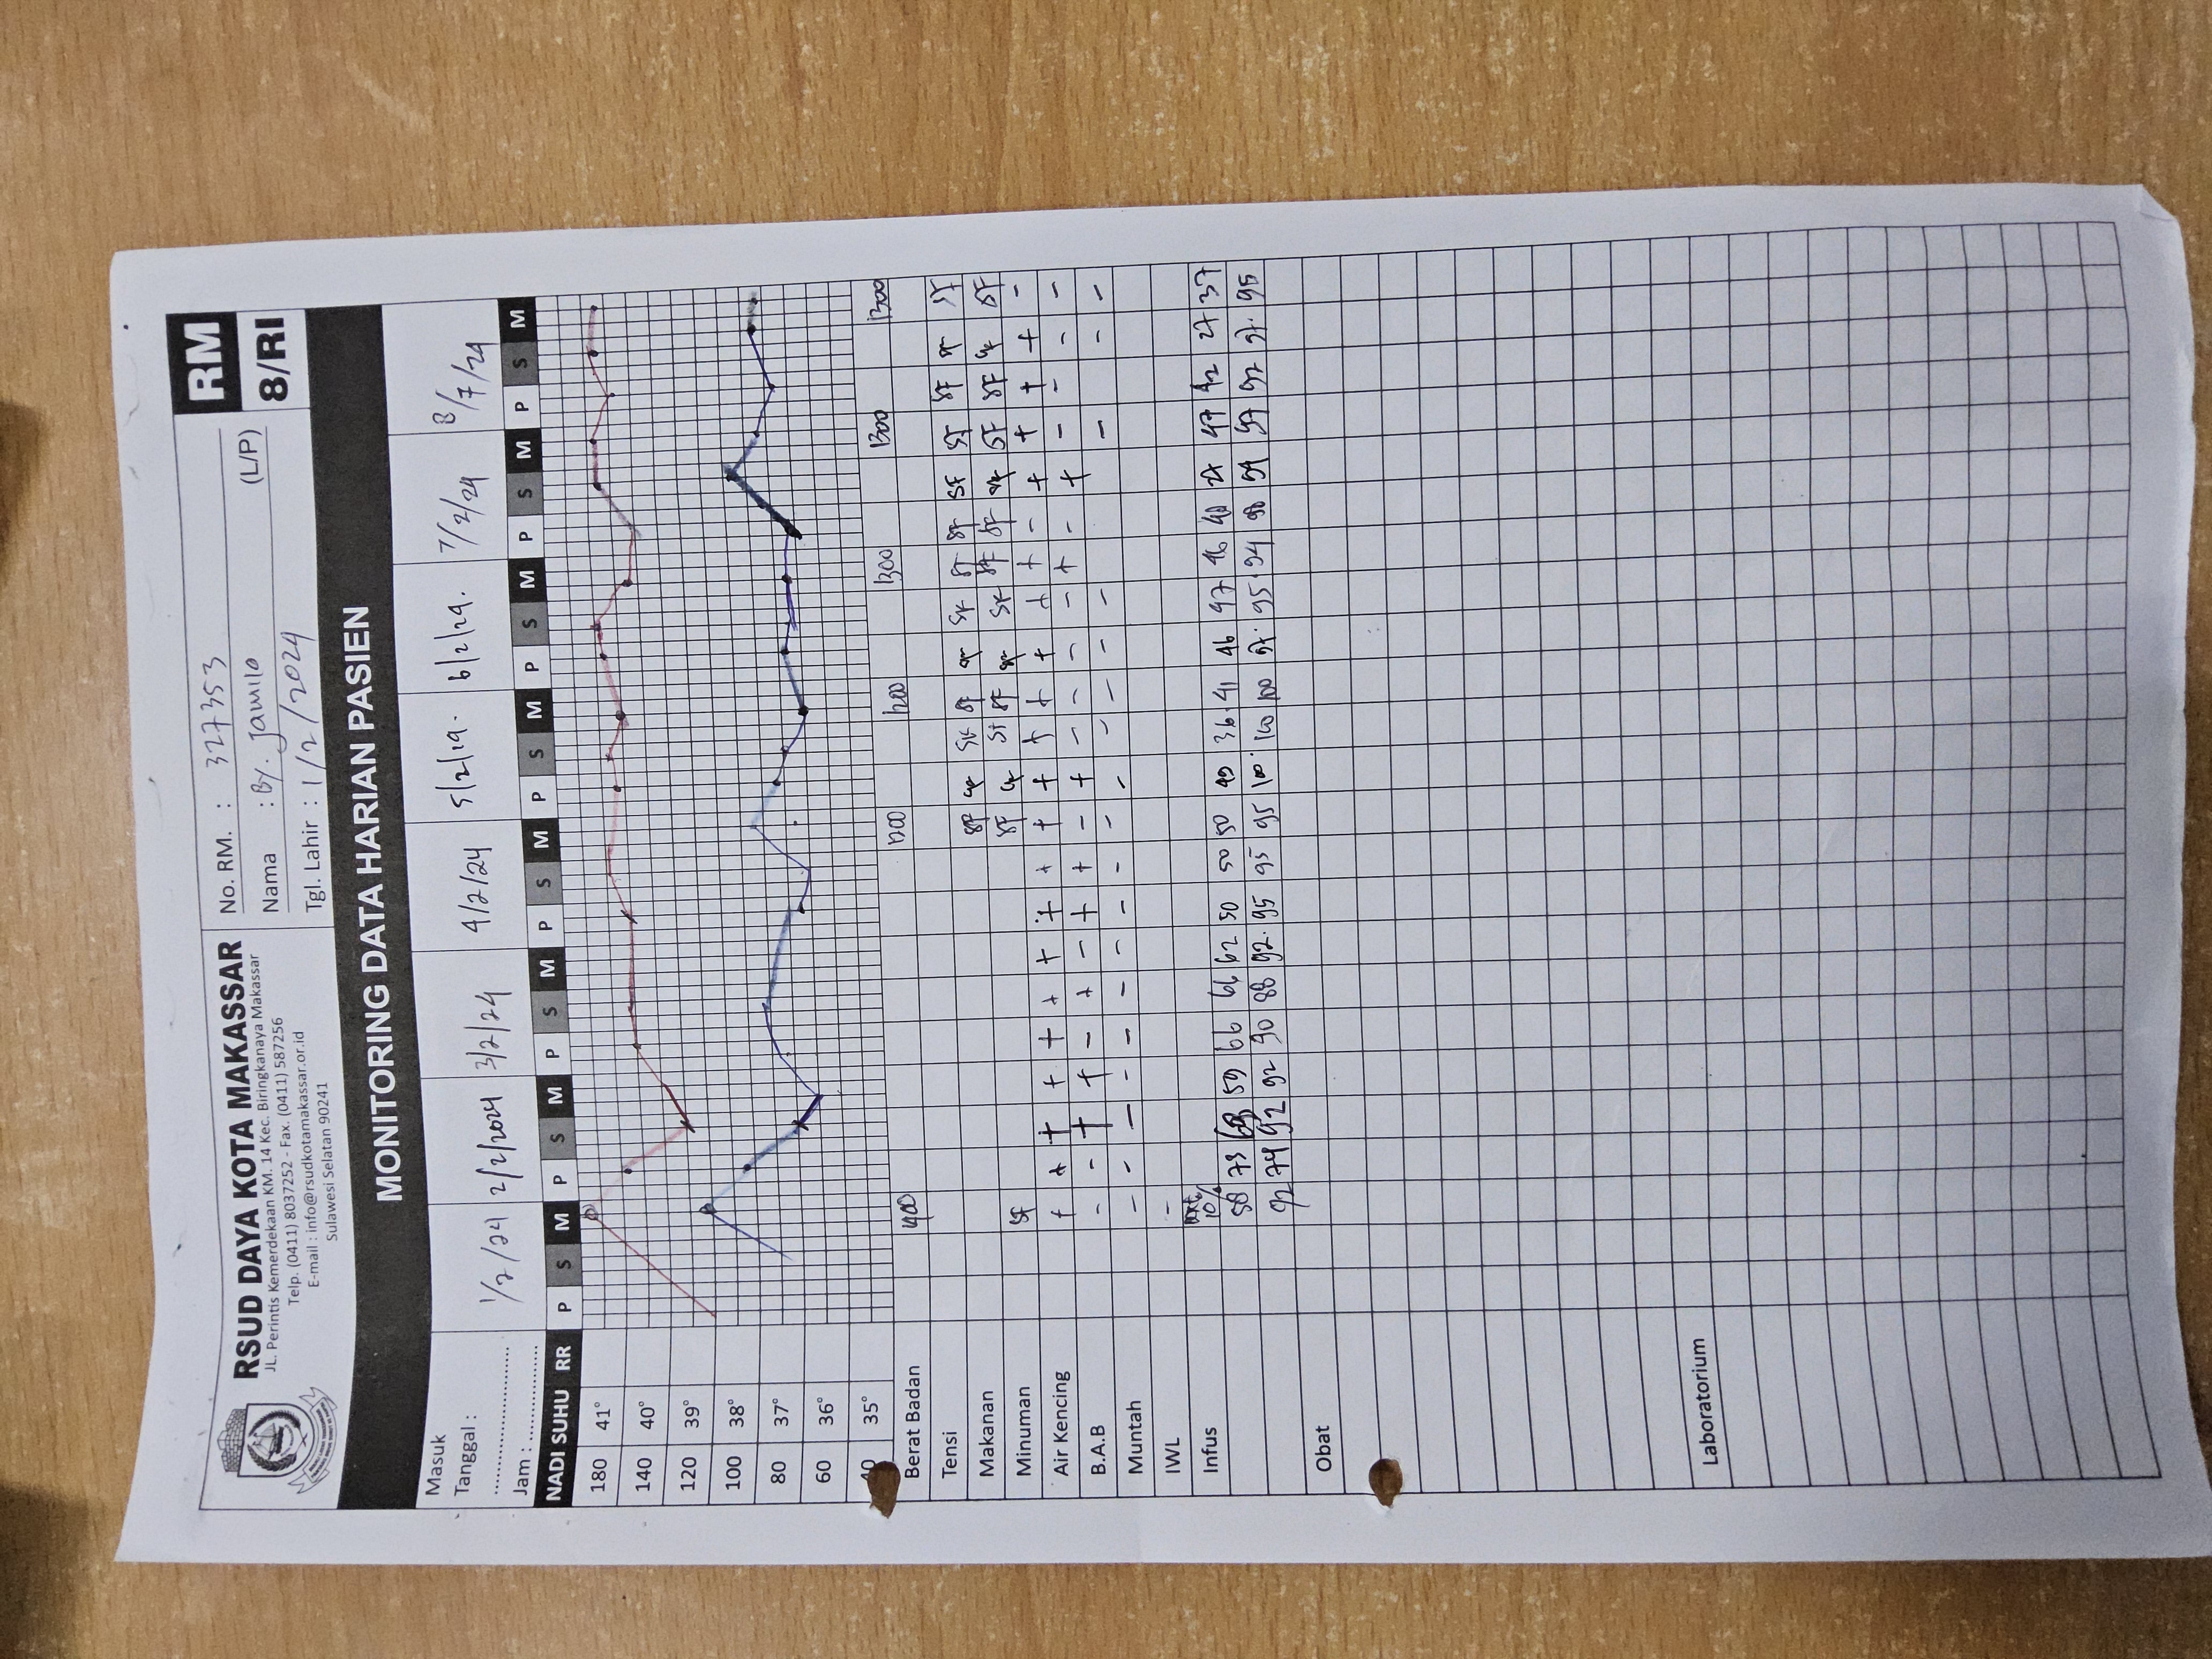 RSUD DAYA KOTA MAKASSAR
JL. Perintis Kemerdekaan KM. 14 Kec. Biringkanaya Makassar
Telp. (0411) 8037252 - Fax. (0411) 587256
E-mail : info@rsudkotamakassar.or.id
Sulawesi Selatan 90241
No. RM. : 327353
Nama : By. Jamila (L/P)
Tgl. Lahir : 1/2/2024
RM
8/RI
MONITORING DATA HARIAN PASIEN
Masuk
Tanggal :
Jam :
1/2/24 2/2/2024 3/2/24 4/2/24 5/2/24. 6/2/24. 7/2/24 8/7/24
NADI SUHU RR P S M P S M P S M P S M P S M P S M P S M P S M
180 41°
140 40°
120 39°
100 38°
80 37°
60 36°
40 35°
Berat Badan 1400 1200 1200 1300 1300 1300
Tensi
Makanan
Minuman SF
Air Kencing
B.A.B
Muntah
IWL
Infus
10%
58 73 68 59 66 66 62 50 50 50 49 36 41 46 47 46 48 27 47 42 27 37
92 74 92 92 90 88 92. 95 95 95 100. 100 100 97. 95. 94 98 94 97 92 97. 95
Obat
Laboratorium